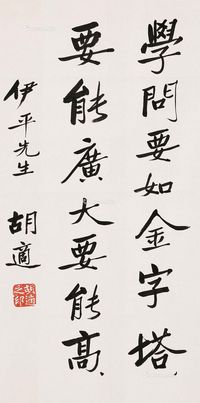 學問要如金字塔
要能廣大要能高
伊平先生
胡適
胡適之印